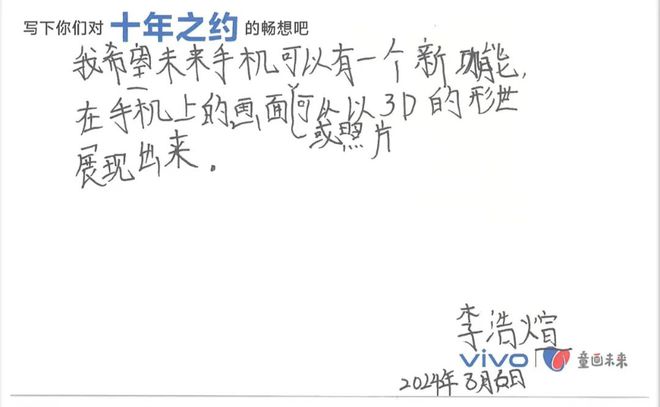 写下你们对 十年之约 的畅想吧
我希望未来手机可以有一个新功能,
在手机上的画面或照片可以以3D的形世
展现出来.
李浩煊
vivo 童画未来
2024年3月6日